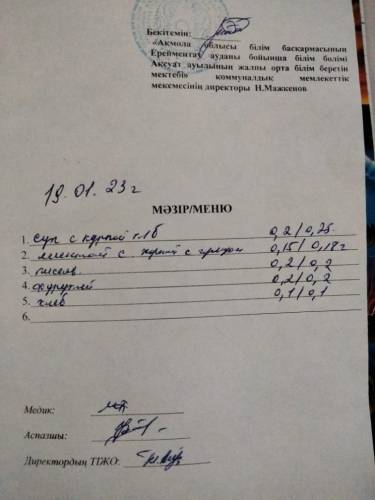 Бекітемін:
«Ақмола облысы білім басқармасының
Ерейментау ауданы бойынша білім бөлімі
Ақсуат ауылының жалпы орта білім беретін
мектебі» коммуналдық мемлекеттік
мекемесінің директоры Н.Мажкенов
19.01.23 г
МӘЗІР/МЕНЮ
1. Суп с курицей 0,2/0,25
2. с 0,15/0,18 г
3. кисель 0,2/0,2
4. 0,2/0,2
5. хлеб 0,1/0,1
6.
Медик:
Аспазшы:
Директордың ТІЖО: